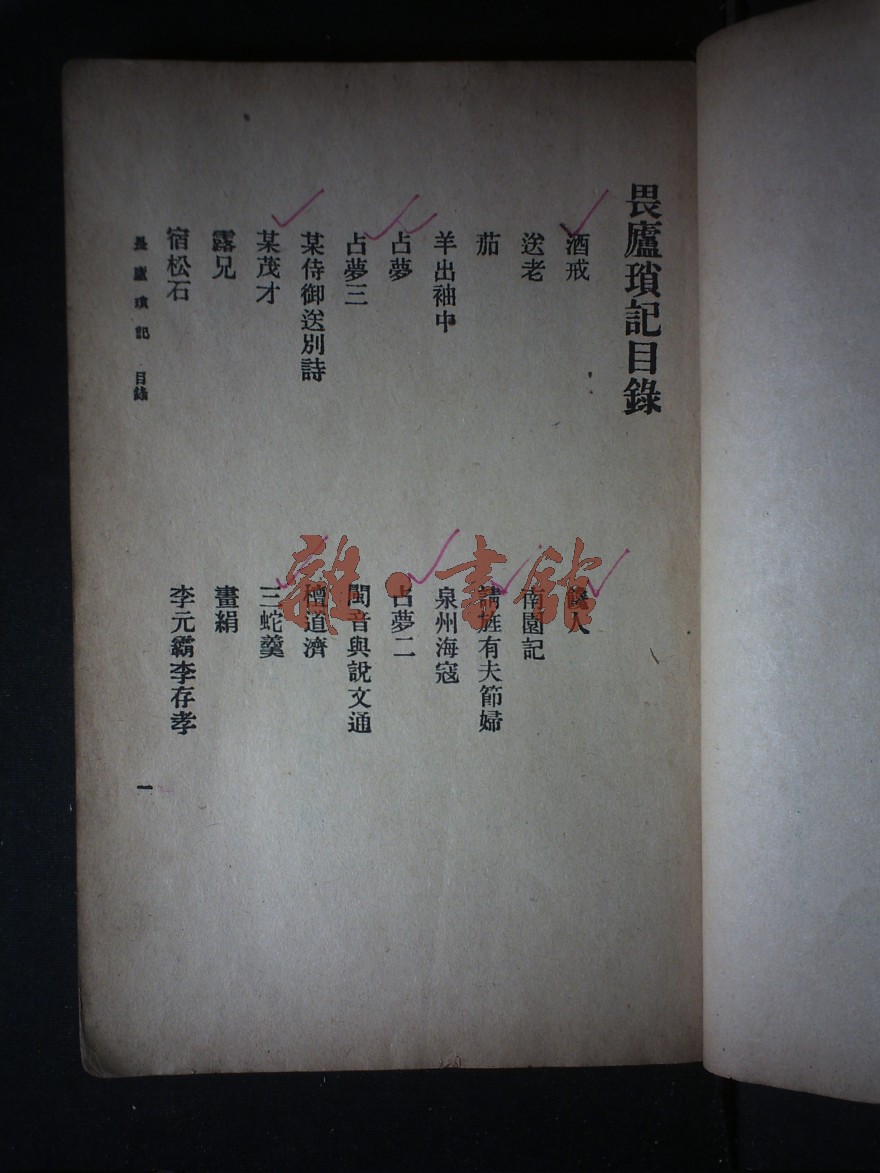 畏廬瑣記目錄
酒戒
人
送老
南園記
茄
請旌有夫節婦
羊出袖中
泉州海寇
占夢
占夢二
占夢三
閩音與說文通
某侍御送別詩
檀道濟
某茂才
三蛇羹
露兄
畫絹
宿松石
李元霸李存孝
畏廬瑣記 目錄
一
雜·書館